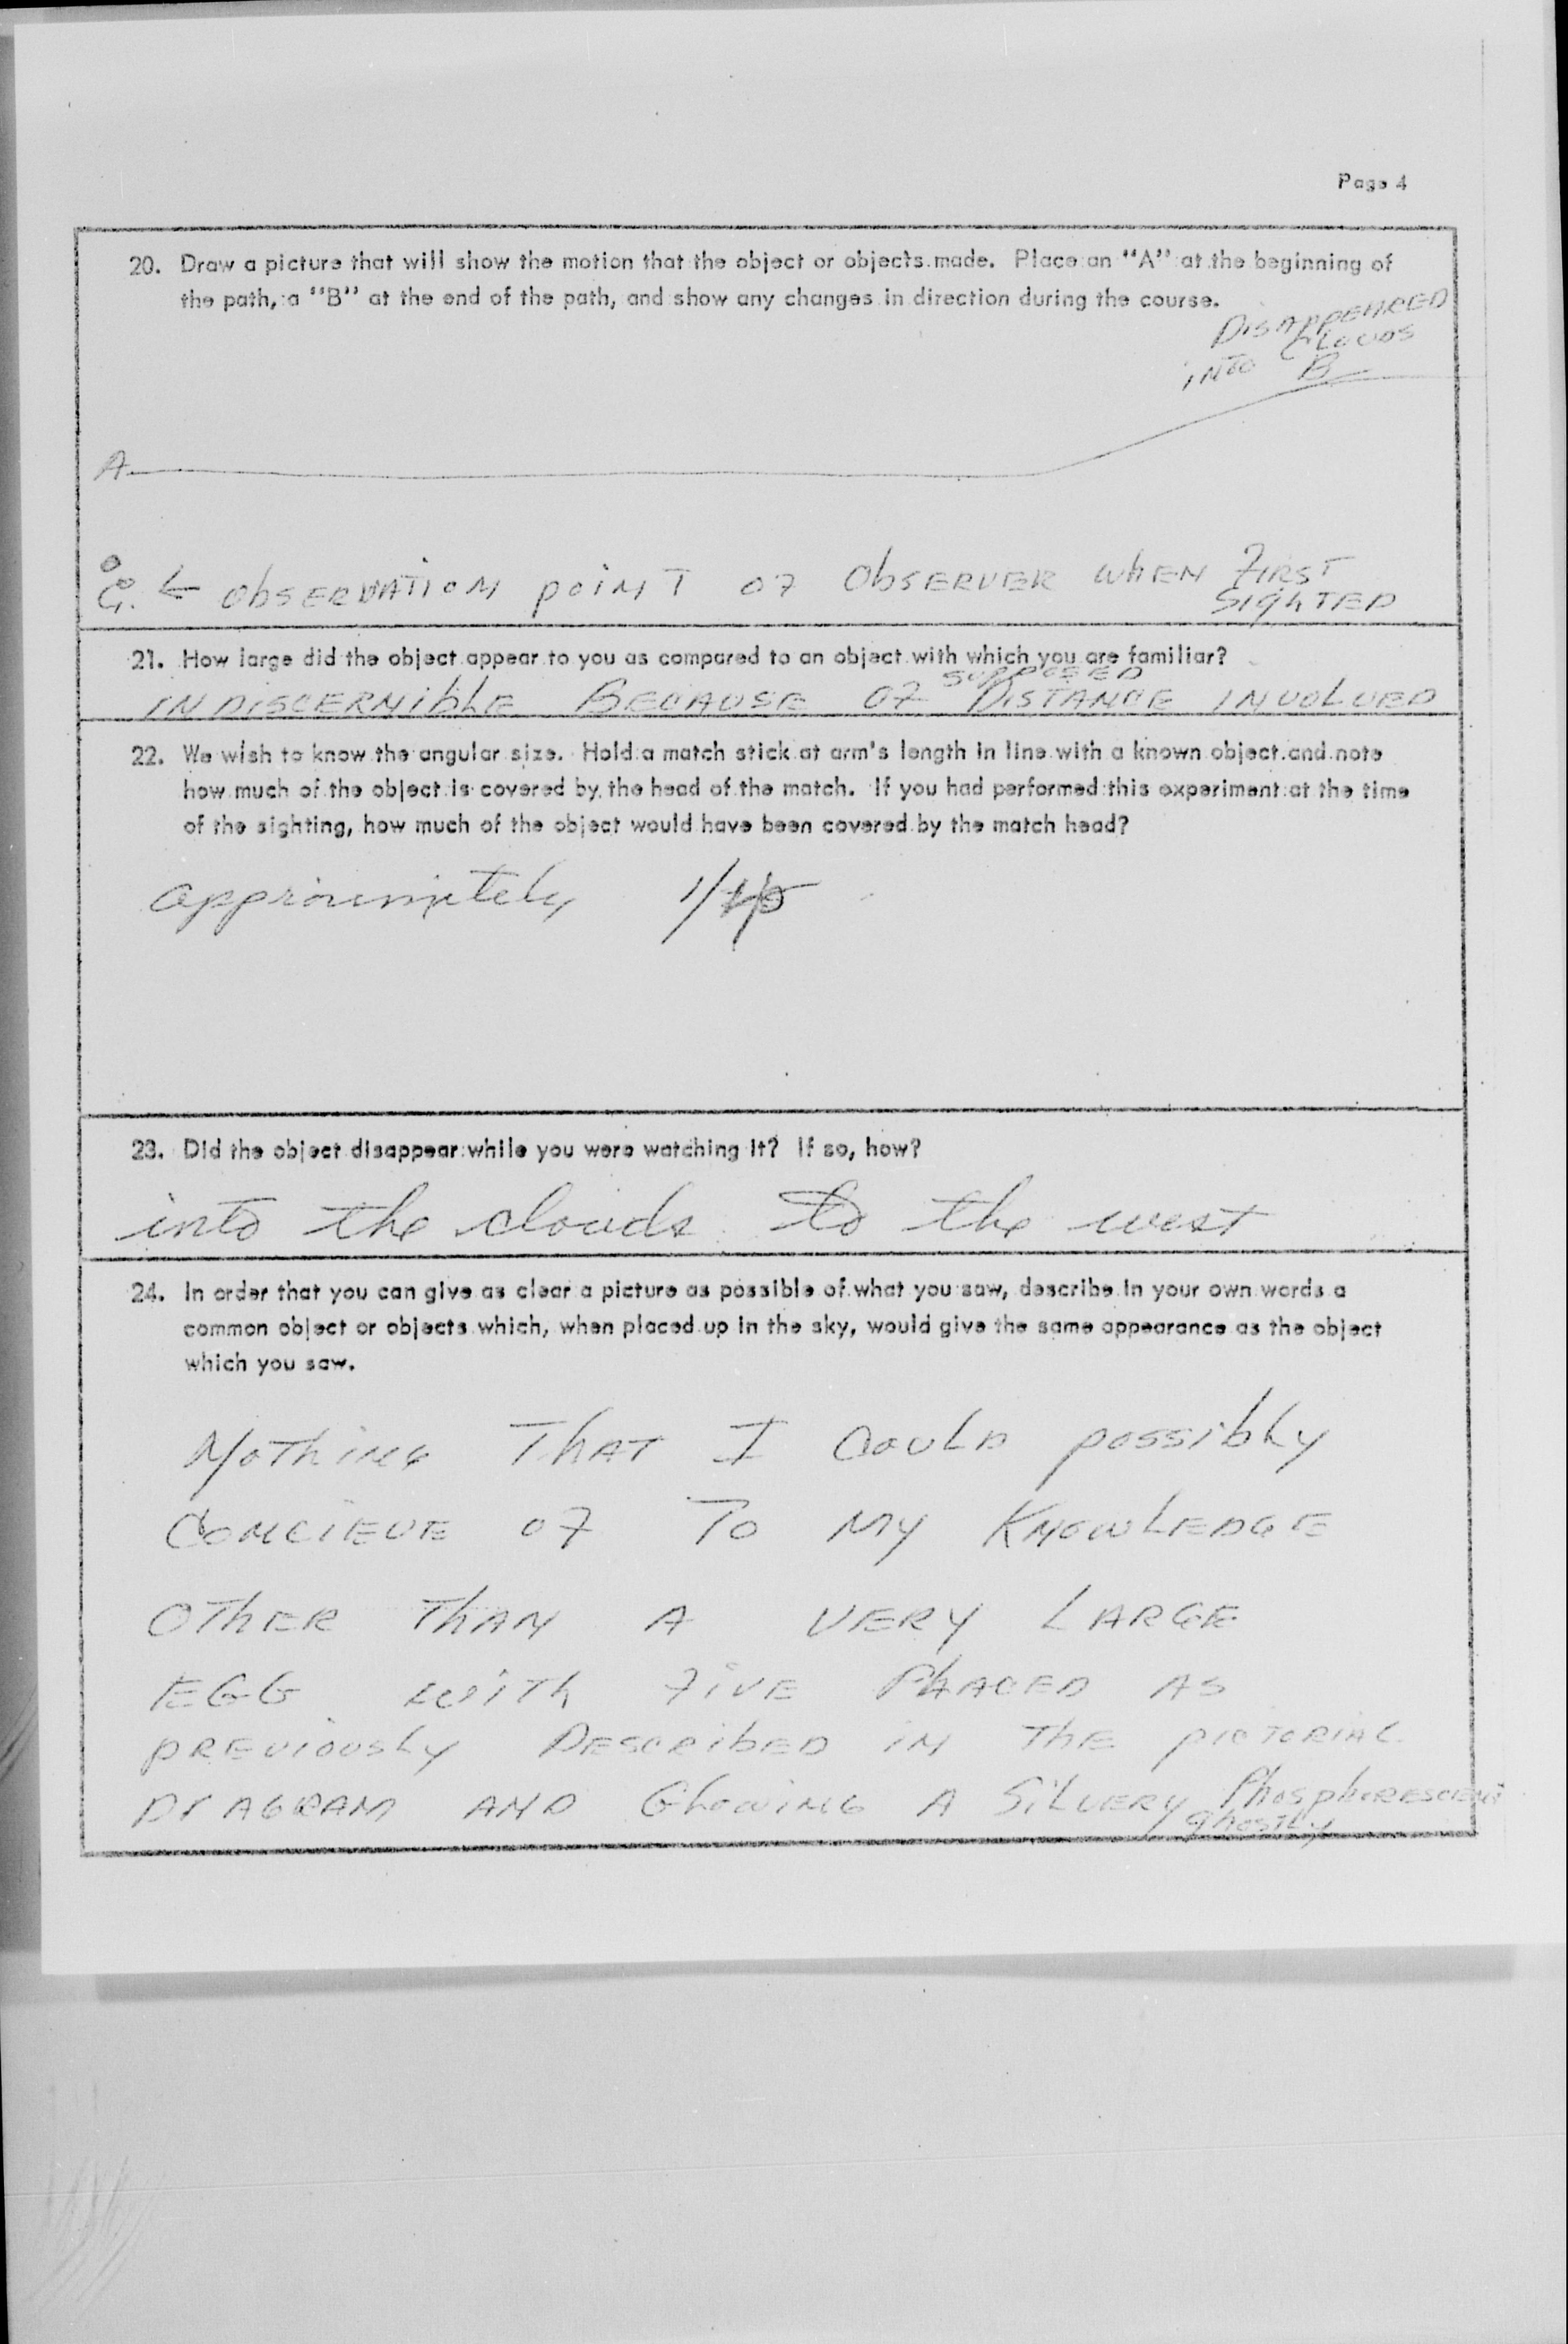 Page 4
20. Draw a picture that will show the motion that the object or objects made. Place an "A" at the beginning of
the path, a "B" at the end of the path, and show any changes in direction during the course.
DISAPPEARED
INTO CLOUDS
B
A
← OBSERVATION POINT OF OBSERVER WHEN FIRST
SIGHTED
21. How large did the object appear to you as compared to an object with which you are familiar?
SUPPOSED
INDISCERNIBLE BECAUSE OF DISTANCE INVOLVED
22. We wish to know the angular size. Hold a match stick at arm's length in line with a known object and note
how much of the object is covered by the head of the match. If you had performed this experiment at the time
of the sighting, how much of the object would have been covered by the match head?
approximately
23. Did the object disappear while you were watching it? If so, how?
into the clouds to the west
24. In order that you can give as clear a picture as possible of what you saw, describe in your own words a
common object or objects which, when placed up in the sky, would give the same appearance as the object
which you saw.
NOTHING THAT I COULD POSSIBLY
CONCIEVE OF TO MY KNOWLEDGE
OTHER THAN A VERY LARGE
EGG WITH FIVE PLACED AS
PREVIOUSLY DESCRIBED IN THE PICTORIAL
DIAGRAM AND GLOWING A SILVERY PHOSPHORESCENT
GHOSTLY